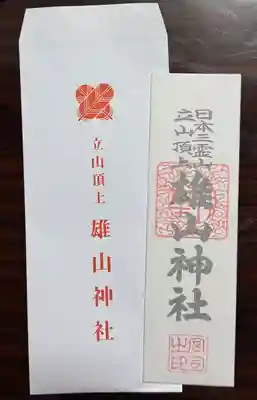 立山頂上
雄山神社
日本三霊山
立山頂上
雄山神社